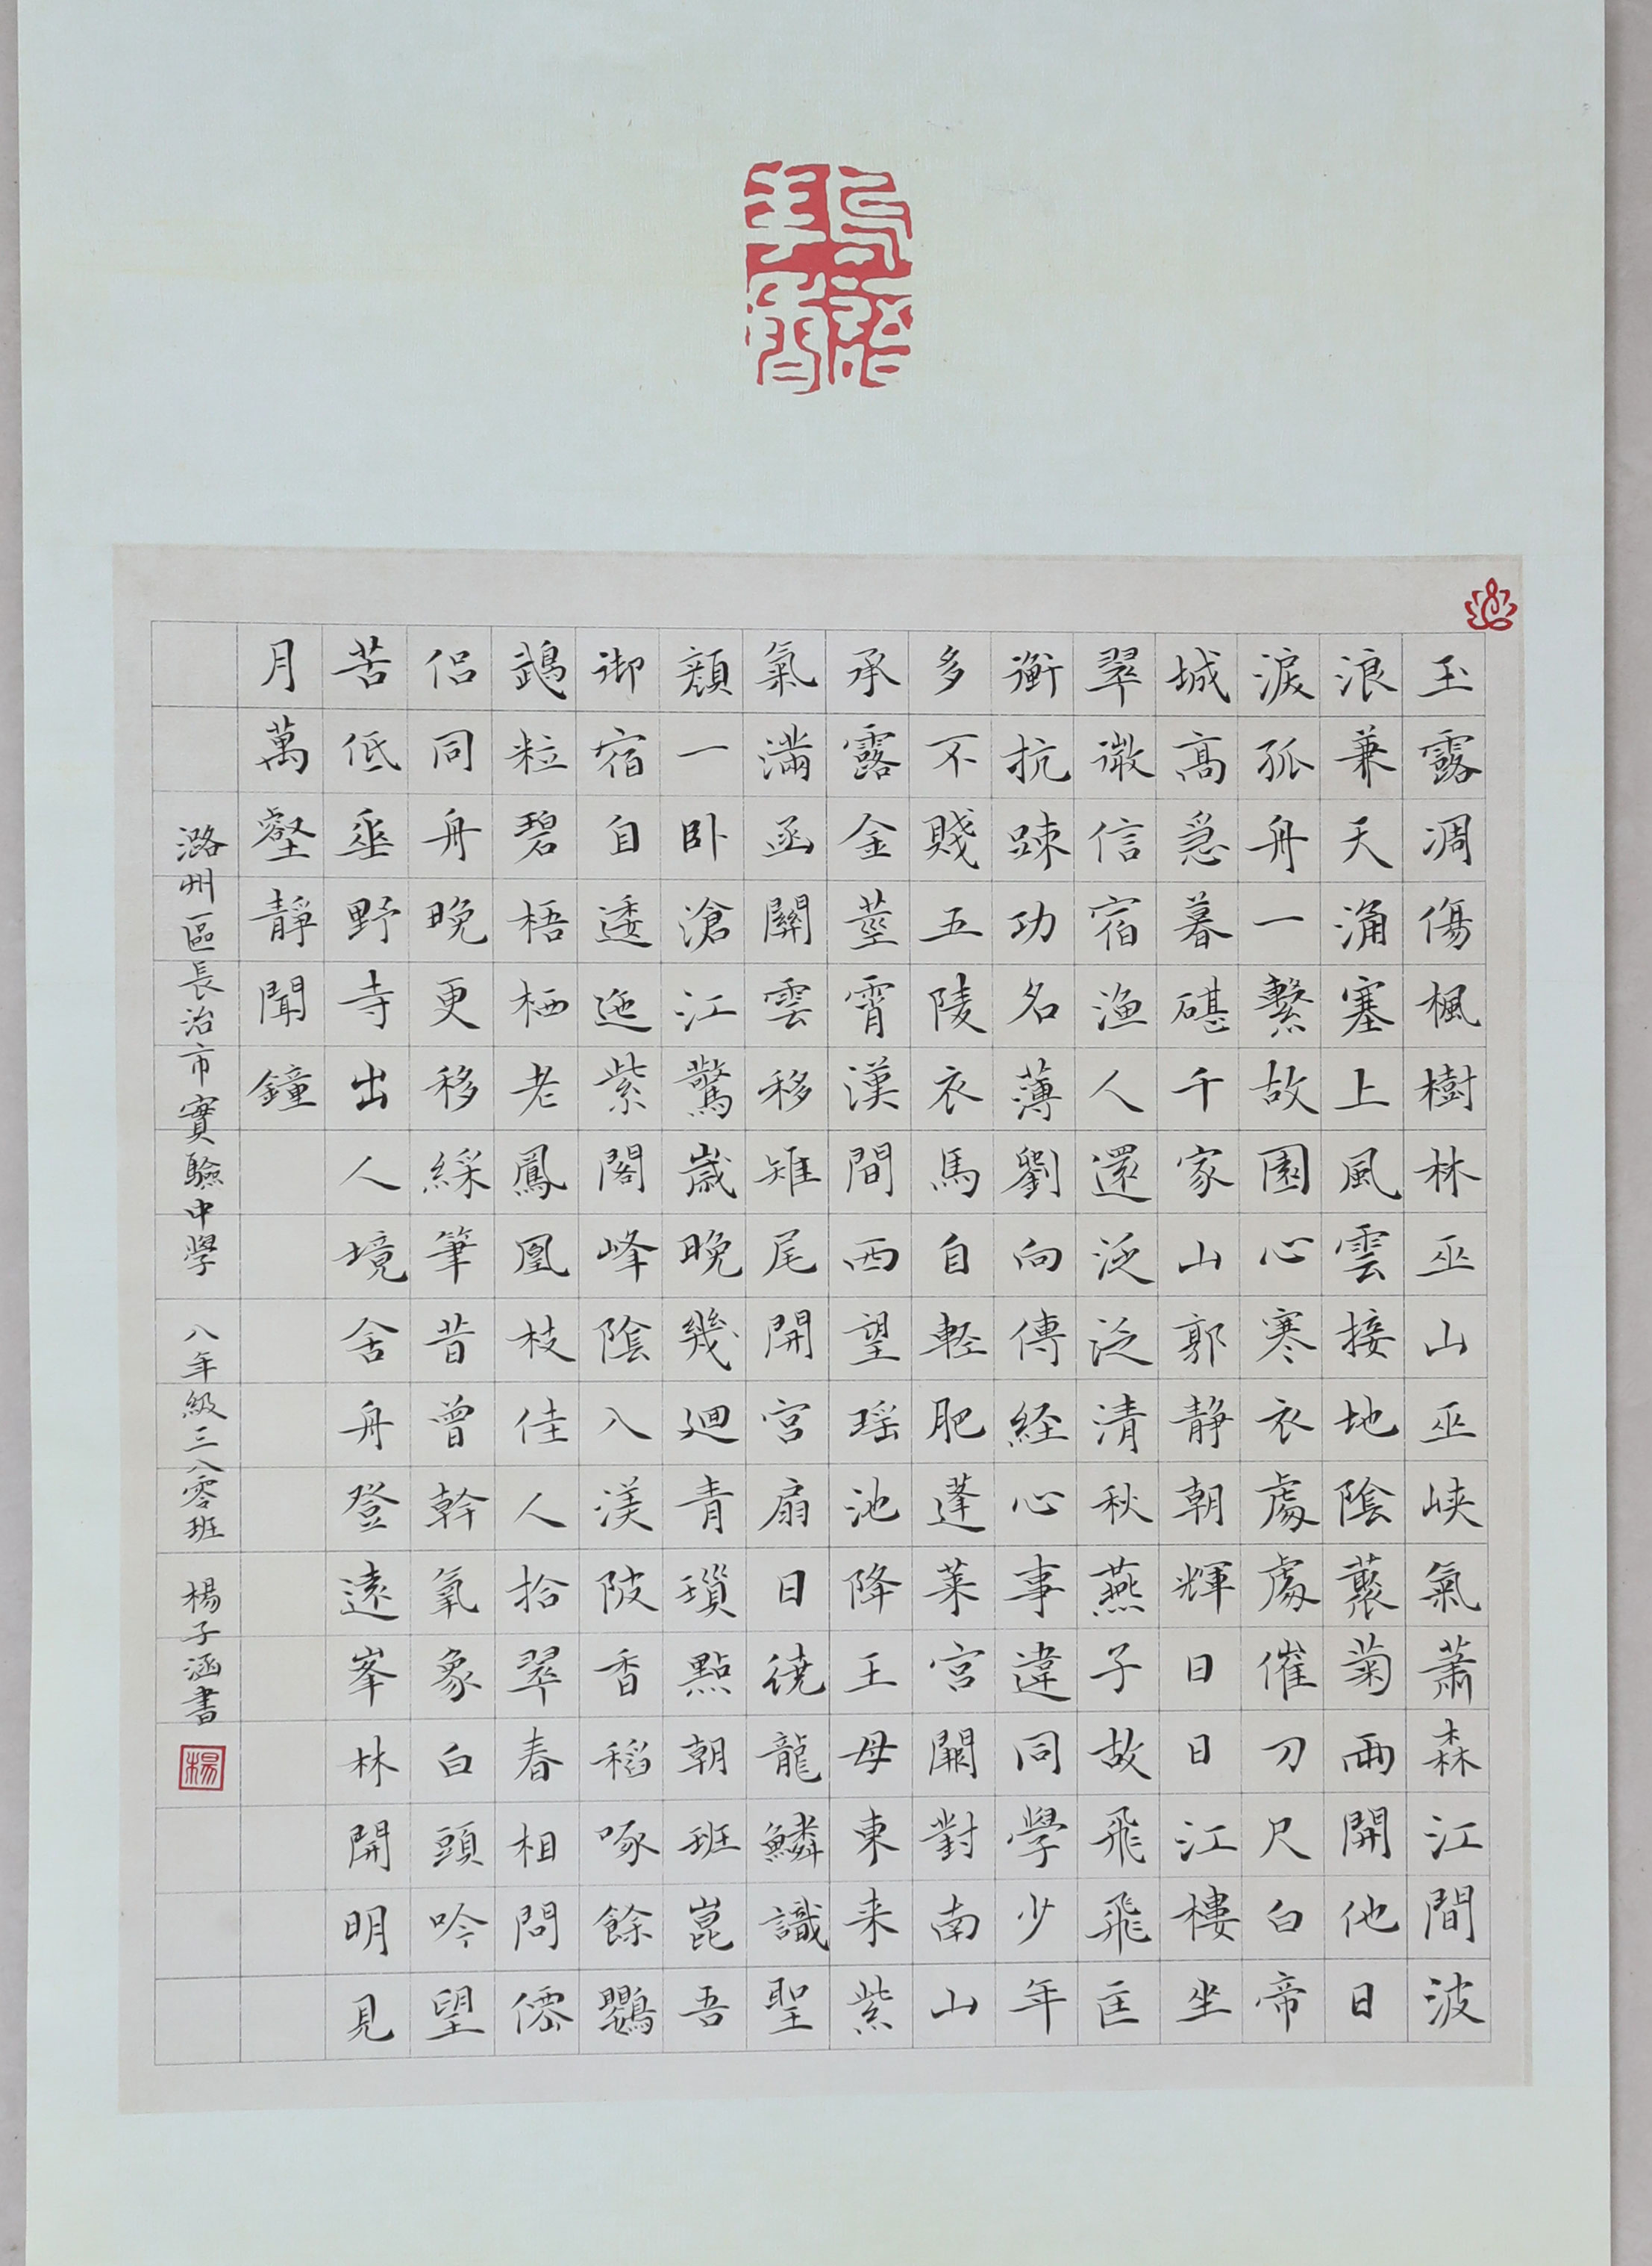 玉露凋傷楓樹林巫山巫峽氣蕭森江間波
浪兼天涌塞上風雲接地陰藂菊兩開他日
淚孤舟一繫故園心寒衣處處催刀尺白帝
城高急暮碪千家山郭靜朝輝日日江樓坐
翠微信宿漁人還泛泛清秋燕子故飛飛匡
衡抗踈功名薄劉向傳經心事違同學少年
多不賤五陵衣馬自輕肥蓬萊宮闕對南山
承露金莖霄漢間西望瑤池降王母東来紫
氣滿函關雲移雉尾開宮扇日繞龍鱗識聖
顏一卧滄江驚歲晚幾迴青瑣點朝班崑吾
御宿自逶迤紫閣峰陰入渼陂香稻啄餘鸚
鵡粒碧梧栖老鳳凰枝佳人拾翠春相問僊
侶同舟晚更移綵筆昔曾幹氣象白頭吟望
苦低垂野寺出人境舍舟登遠峯林開明見
月萬壑靜聞鐘
潞州區長治市實驗中學 八年級三八零班 楊子涵書
楊